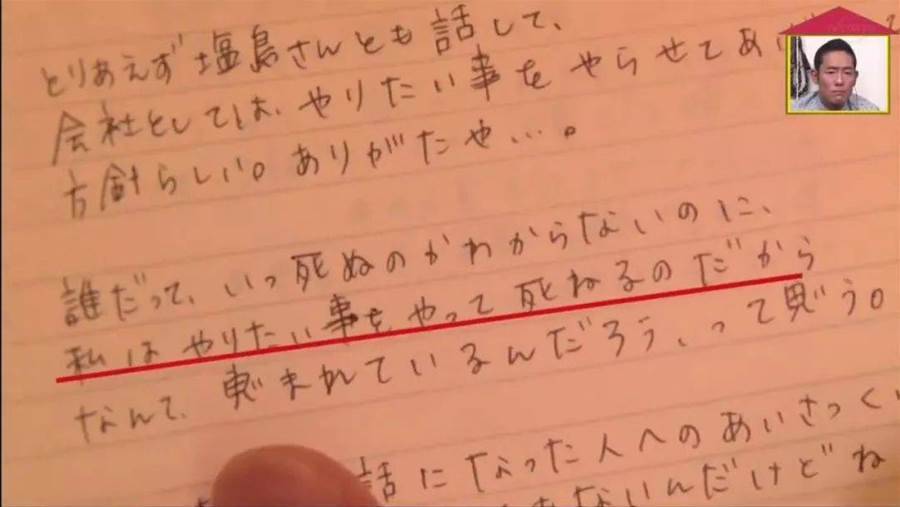 とりあえず塩島さんとも話して、
会社としては、やりたい事をやらせてあげ
方針らしい。ありがたや…。
誰だって、いつ死ぬのかわからないのに、
私はやりたい事をやって死ねるのだから
なんて、恵まれているんだろう、って思う。
話になった人へのあいさつくい
ないんだけどね